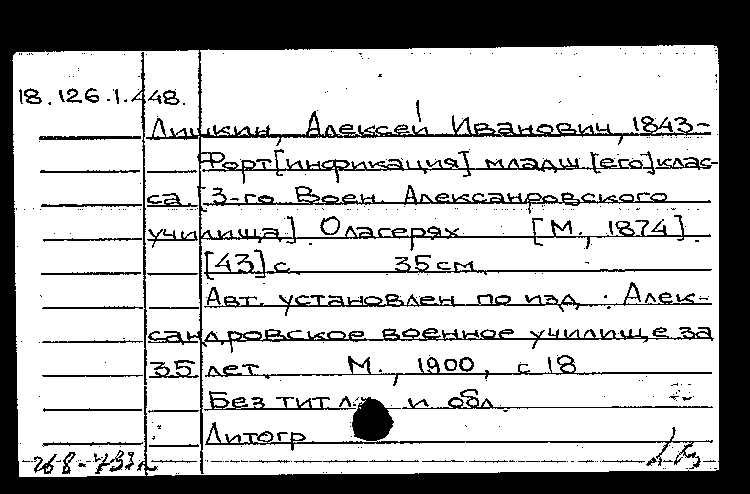 18.126.1.448.
Лишкин, Алексей Иванович, 1843-
Форт[ификация] младш.[его] клас-
са. [3-го Воен. Александровского
училища]. О лагерях [М., 1874].
[43] с. 35 см.
Авт. установлен по изд.: Алек-
сандровское военное училище за
35 лет. М., 1900, с 18
Без тит. л. и обл.
Литогр.